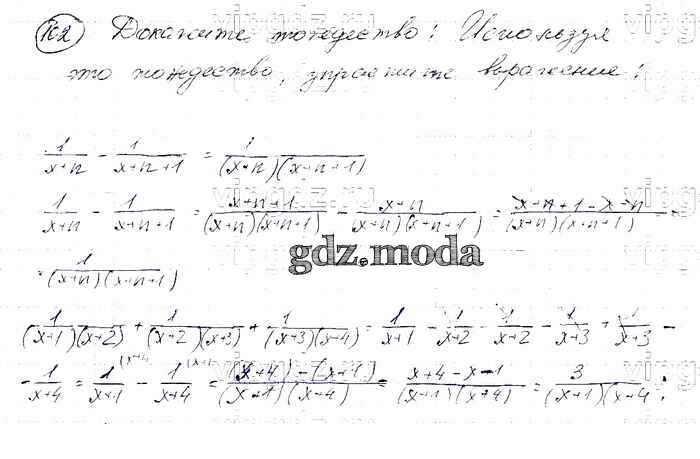 К2 Докажите тождество: Используя
это тождество, упростите выражение:
1/(x+n) - 1/(x+n+1) = 1/((x+n)(x+n+1))
1/(x+n) - 1/(x+n+1) = (x+n+1)/((x+n)(x+n+1)) - (x+n)/((x+n)(x+n+1)) = (x+n+1-x-n)/((x+n)(x+n+1)) =
gdz.moda
= 1/((x+n)(x+n+1))
1/((x+1)(x+2)) + 1/((x+2)(x+3)) + 1/((x+3)(x+4)) = 1/(x+1) - 1/(x+2) - 1/(x+2) - 1/(x+3) + 1/(x+3) -
- 1/(x+4) = 1/(x+1) - 1/(x+4) = ((x+4)-(x+1))/((x+1)(x+4)) = (x+4-x-1)/((x+1)(x+4)) = 3/((x+1)(x+4));